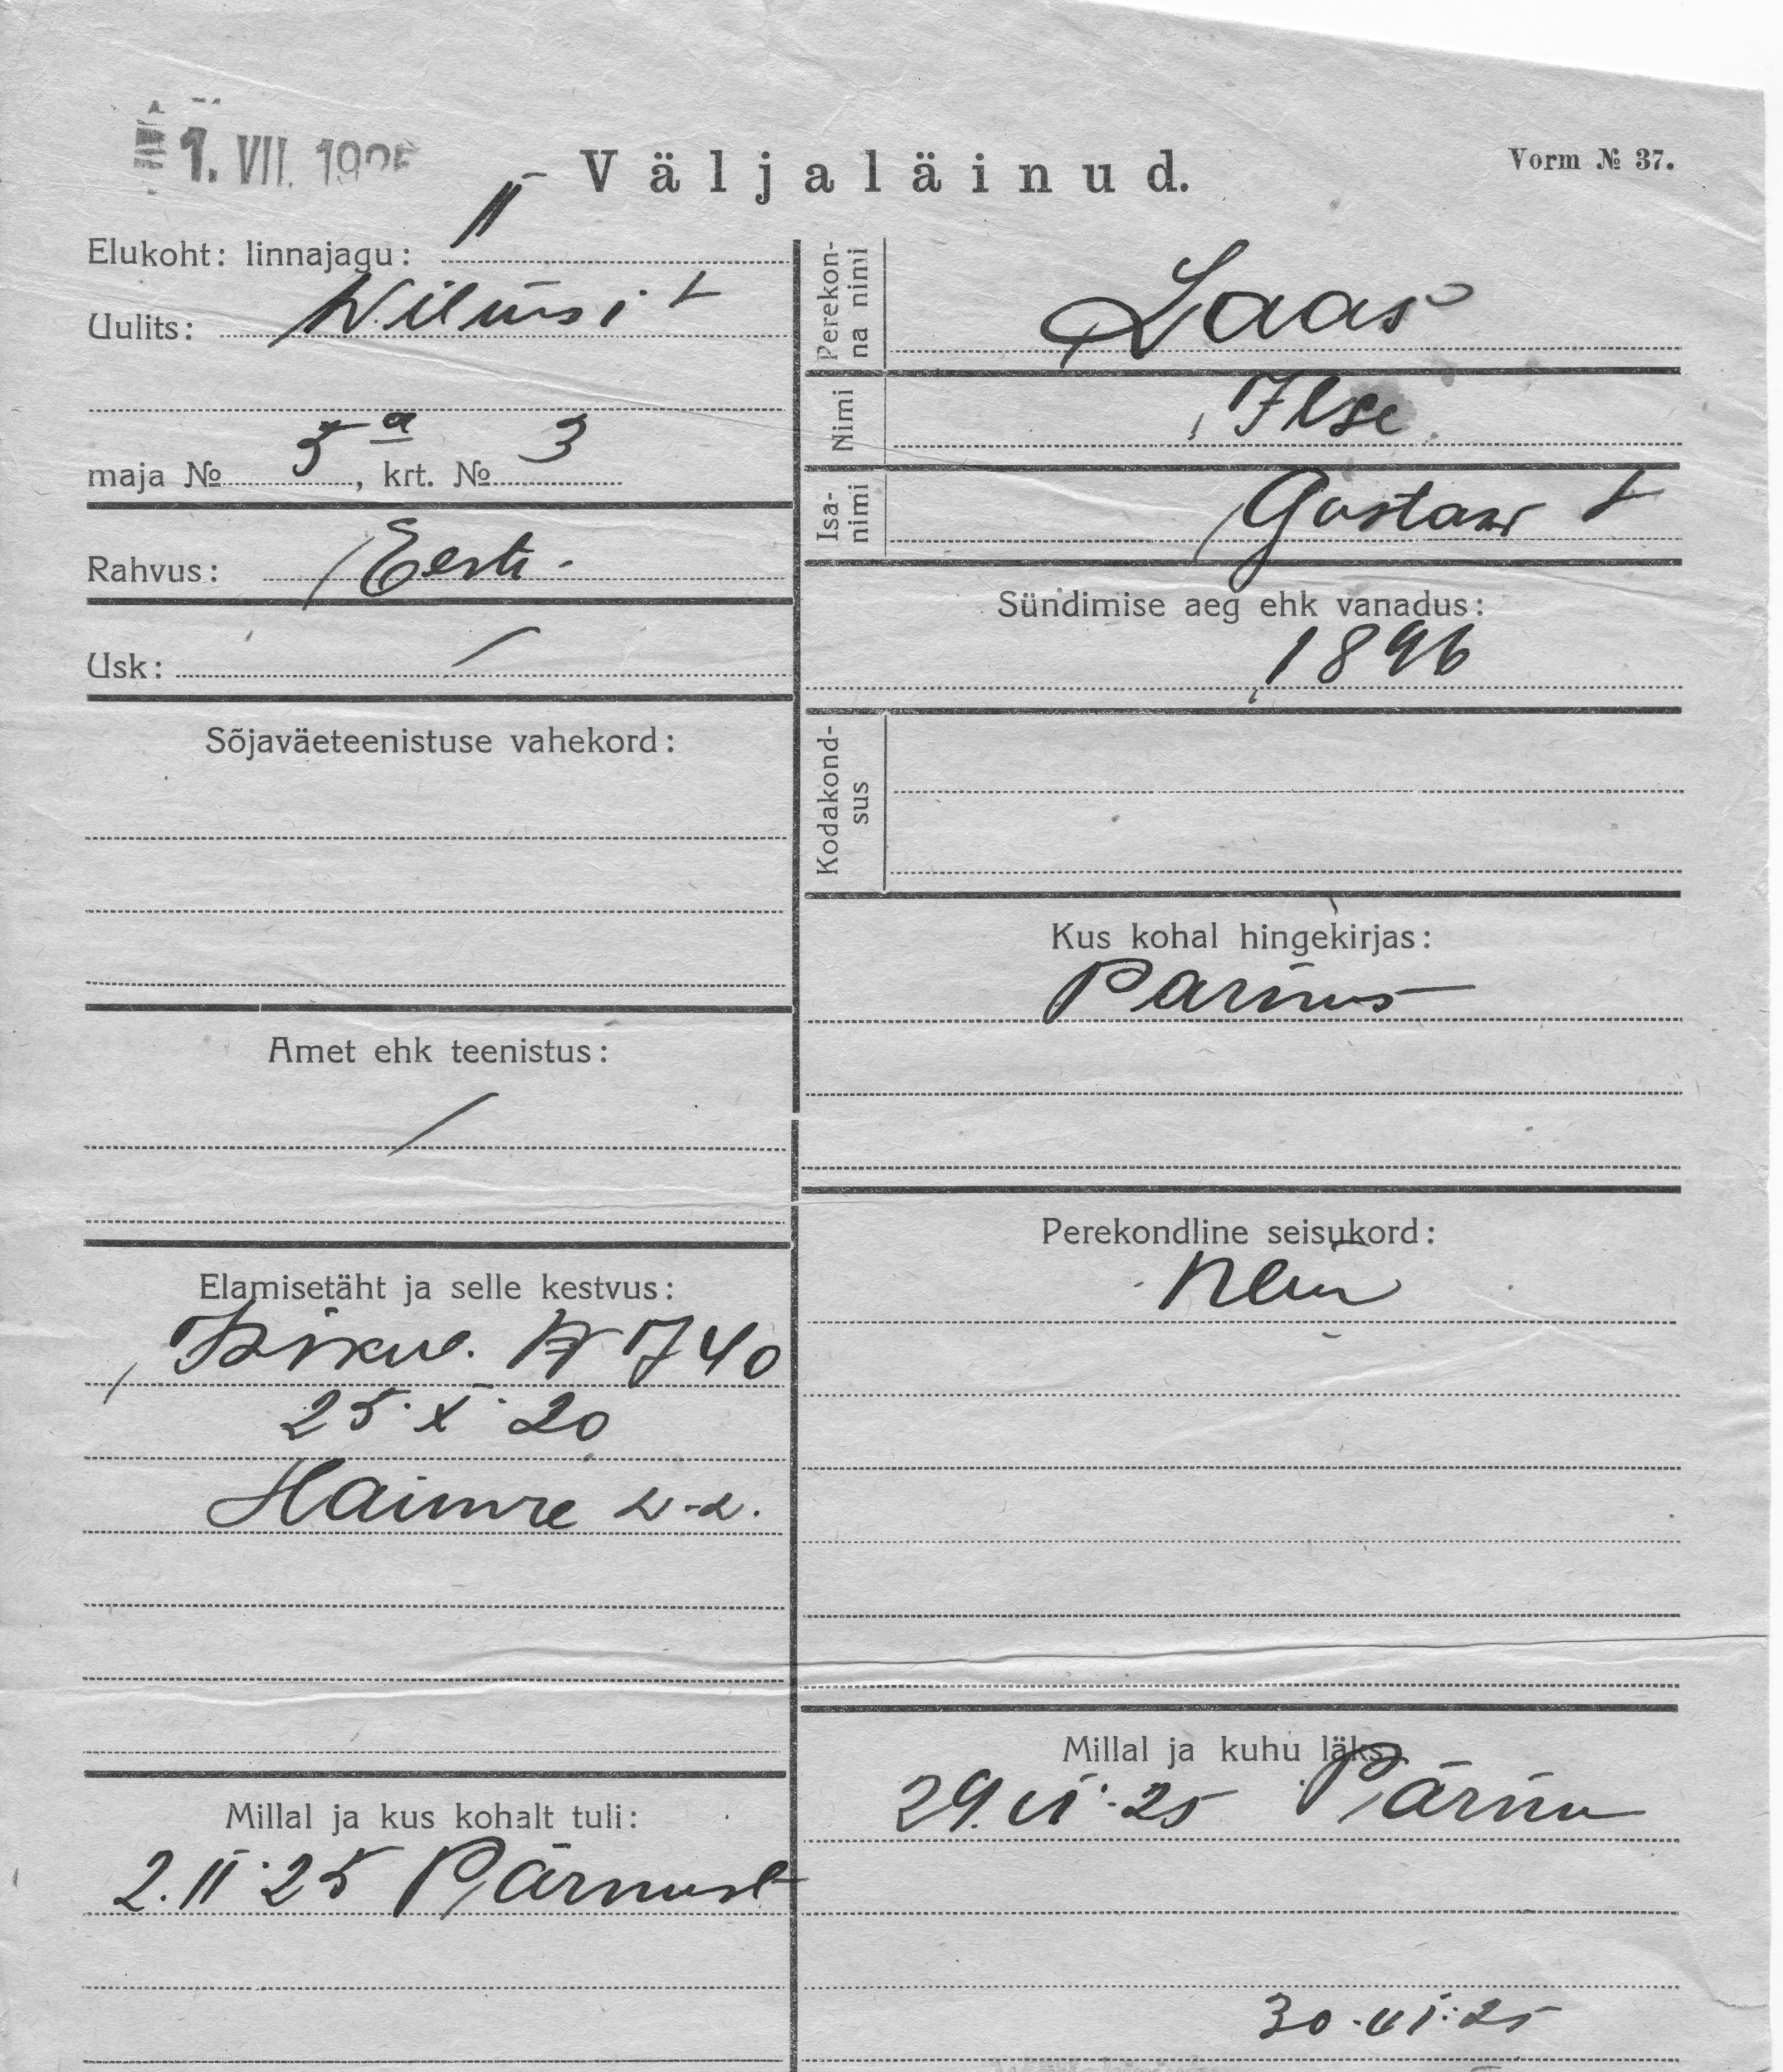 1. VII. 1925
Väljaläinud.
Vorm № 37.
Elukoht: linnajagu: II
Uulits: Wilmsi t
maja № 5 a, krt. № 3
Rahvus: Eesti.
Usk: /
Sõjaväeteenistuse vahekord:
Amet ehk teenistus:
/
Elamisetäht ja selle kestvus:
Isikut. № 740
25. X. 20
Haimre v-v.
Millal ja kus kohalt tuli:
2. II. 25 Pärnust
Perekonna nimi
Laas
Nimi
Ilse
Isanimi
Gustav t
Sündimise aeg ehk vanadus:
1896
Kodakondsus
Kus kohal hingekirjas:
Pärnus
Perekondline seisukord:
Millal ja kuhu läks:
29. VI. 25 Pärnu
30. VI. 25